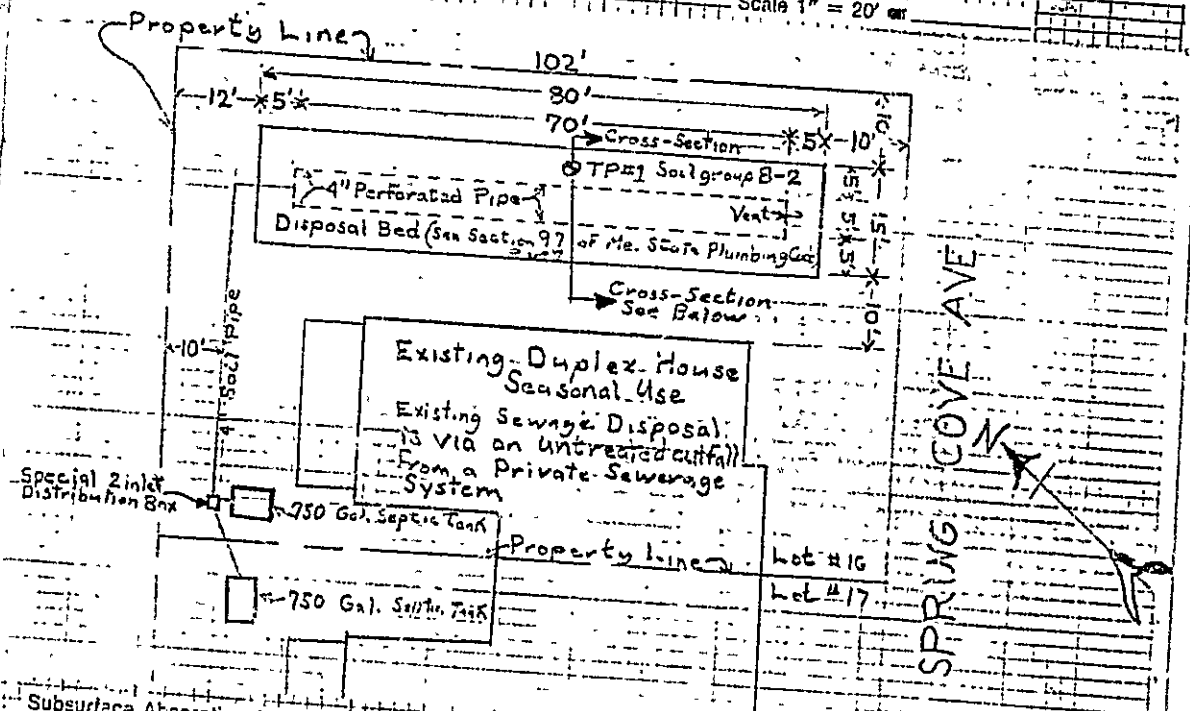 Scale 1" = 20'
Property Line
102'
12' 5' 80'
70' 5 10'
10'
Cross-Section
TP#1 Soil group 8-2
4" Perforated Pipe
Vent
5' 5' 5'
15'
Disposal Bed (See Section 97 of Me. State Plumbing Code)
Cross-Section
See Below
10'
4" Soil Pipe
10'
Existing Duplex House
Seasonal Use
Existing Sewage Disposal
is via an untreated outfall
From a Private Sewerage
System
Special 2 inlet
Distribution Box
750 Gal. Septic Tank
Property Line
Lot #16
Lot #17
750 Gal. Septic Tank
SPRING COVE AVE
N
Subsurface